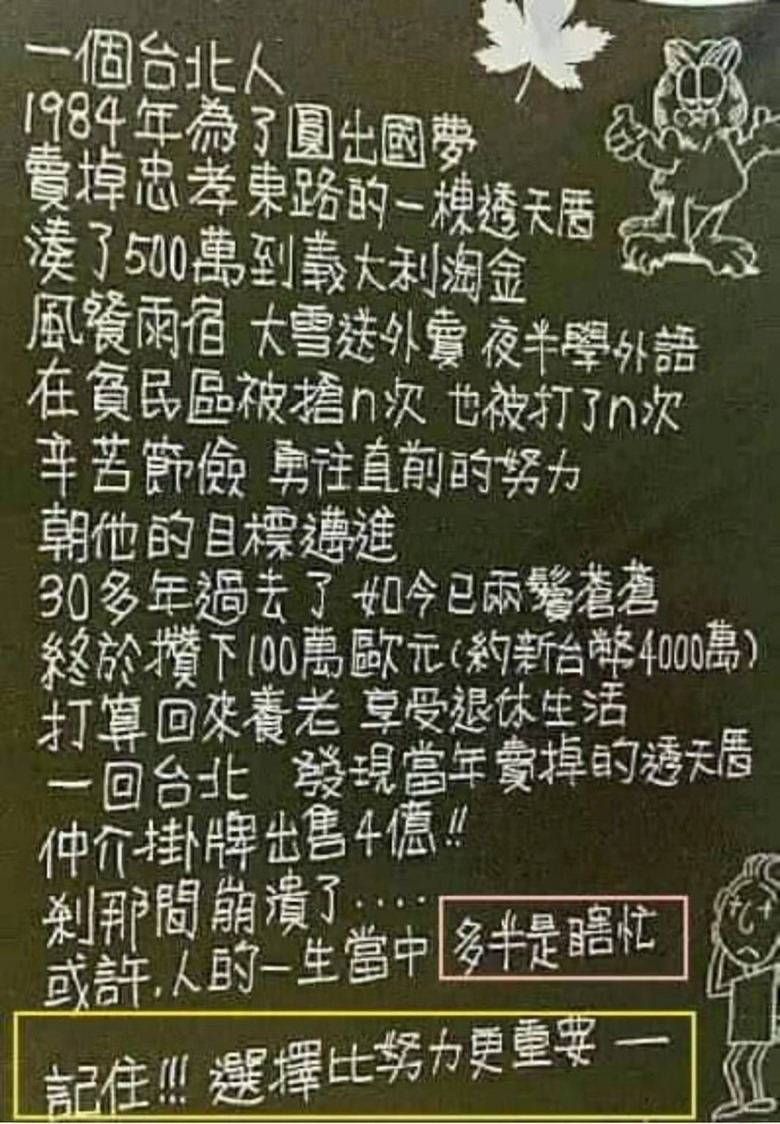 一個台北人
1984年為了圓出國夢
賣掉忠孝東路的一棟透天厝
湊了500萬到義大利淘金
風餐雨宿 大雪送外賣 夜半學外語
在貧民區被搶n次 也被打了n次
辛苦節儉 勇往直前的努力
朝他的目標邁進
30多年過去了 如今已兩鬢蒼蒼
終於攢下100萬歐元(約新台幣4000萬)
打算回來養老 享受退休生活
一回台北 發現當年賣掉的透天厝
仲介掛牌出售4億!!
剎那間崩潰了....
或許,人的一生當中 多半是瞎忙
記住!!! 選擇比努力更重要 一